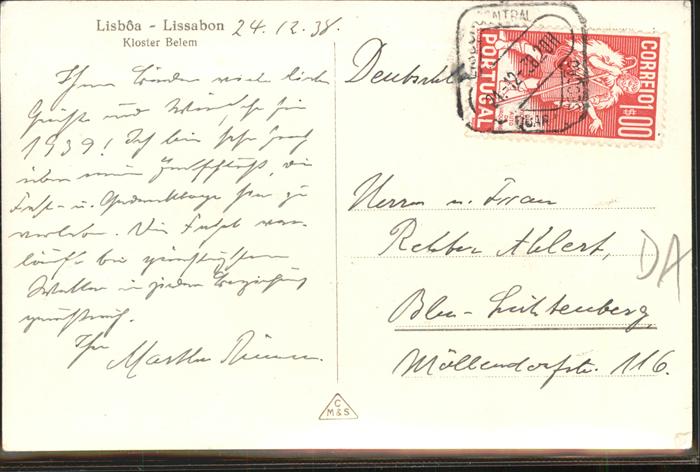 Lisbôa - Lissabon 24.12.38.
Kloster Belem
Ihnen beiden viele liebe
Grüße und Wünsche für
1939! Ich bin sehr froh
über meinen Entschluß, die
Fest- u. Gedenktage hier zu
verleben. Die Fahrt ver-
läuft bei günstigstem
Wetter in jeder Beziehung
genußreich.
Ihre
Martha
Deutschland
CENTRAL
CORREIO 1$00
PORTUGAL
Herrn u. Frau
Rektor Ahlert,
Bln-Lichtenberg,
Möllendorfstr. 116.
DA
C
M&S